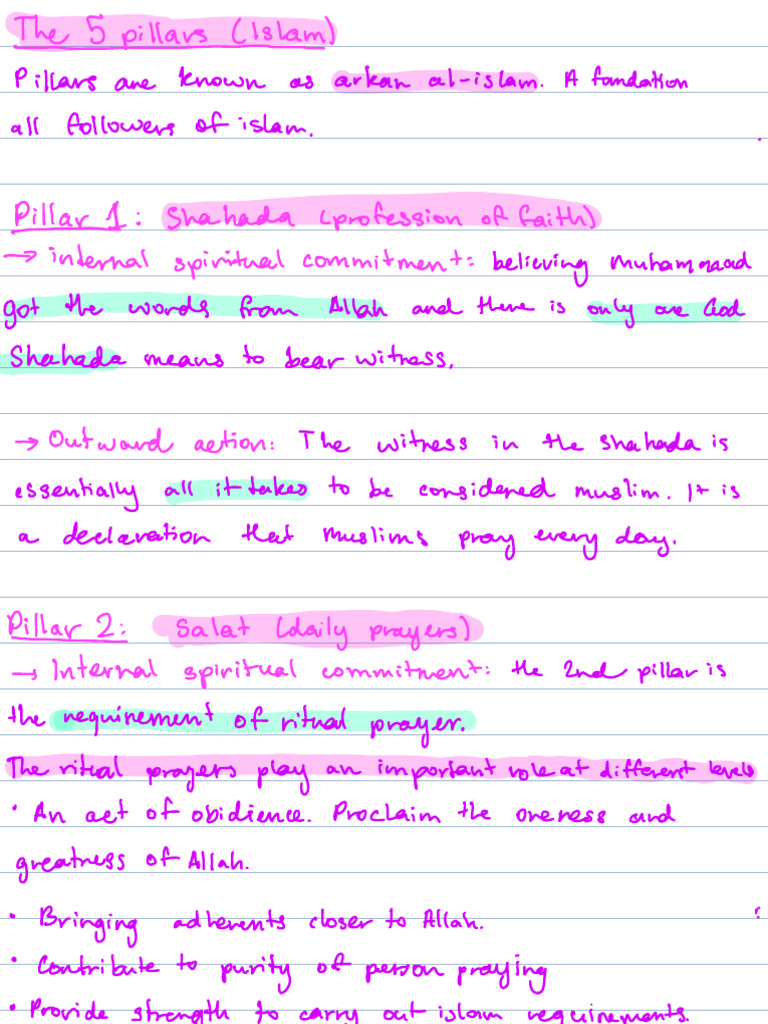 The 5 pillars (Islam)
Pillars are known as arkan al-islam. A foundation
all followers of islam.
Pillar 1: Shahada (profession of faith)
→ internal spiritual commitment: believing Muhammaad
got the words from Allah and there is only one God
Shahada means to bear witness.
→ Outward action: The witness in the shahada is
essentially all it takes to be considered muslim. It is
a declaration that muslims pray every day.
Pillar 2: Salat (daily prayers)
→ Internal spiritual commitment: the 2nd pillar is
the requirement of ritual prayer.
The ritual prayers play an important role at different levels
• An act of obidience. Proclaim the oneness and
greatness of Allah.
• Bringing adherents closer to Allah.
• Contribute to purity of person praying
• Provide strength to carry out islam requirements.